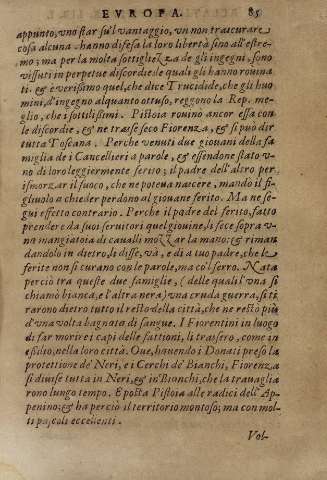 EVROPA. 85
appunto, vno star su'l vantaggio, vn non trascurare
cosa alcuna: hanno difesa la loro libertà sino all'estre-
mo; ma per la molta sottigliezza de gli ingegni, sono
vissuti in perpetue discordie: le quali gli hanno rouina
ti. & è verissimo quel, che dice Trucidide, che gli huo
mini, d'ingegno alquanto ottuso, reggono la Rep. me-
glio, che i sottilissimi. Pistoia rouinò ancor essa con
le discordie, & ne trasse seco Fiorenza, & si può dir
tutta Toscana. Perche venuti due giouani della fa-
miglia de i Cancellieri a parole, & essendone stato v-
no di loro leggiermente ferito; il padre dell'altro per
ismorzar il fuoco, che ne poteua nascere, mandò il fi-
gliuolo a chieder perdono al giouane ferito. Ma ne se-
guì effetto contrario. Perche il padre del ferito, fatto
prendere da suoi seruitori quel giouine, li fece sopra v-
na mangiatoia di caualli mozzar la mano: & riman
dandolo in dietro, li disse, và, e dì a tuo padre, che le
ferite non si curano con le parole, ma co'l ferro. Nata
perciò tra queste due famiglie, (delle quali l'vna si
chiamò bianca, e l'altra nera) vna cruda guerra, si ti
rarono dietro tutto il resto della città, che ne restò più
d'vna volta bagnata di sangue. I Fiorentini in luogo
di far morire i capi delle fattioni, li trassero, come in
essilio, nella loro città. Oue, hauendo i Donati preso la
protettione de' Neri, e i Cerchi de' Bianchi, Fiorenza
si diuise tutta in Neri, & in Bianchi, che la trauaglia
rono lungo tempo. E posta Pistoia alle radici dell'Ap-
penino; & ha perciò il territorio montoso; ma con mol-
ti pascoli eccellenti.
Vol-